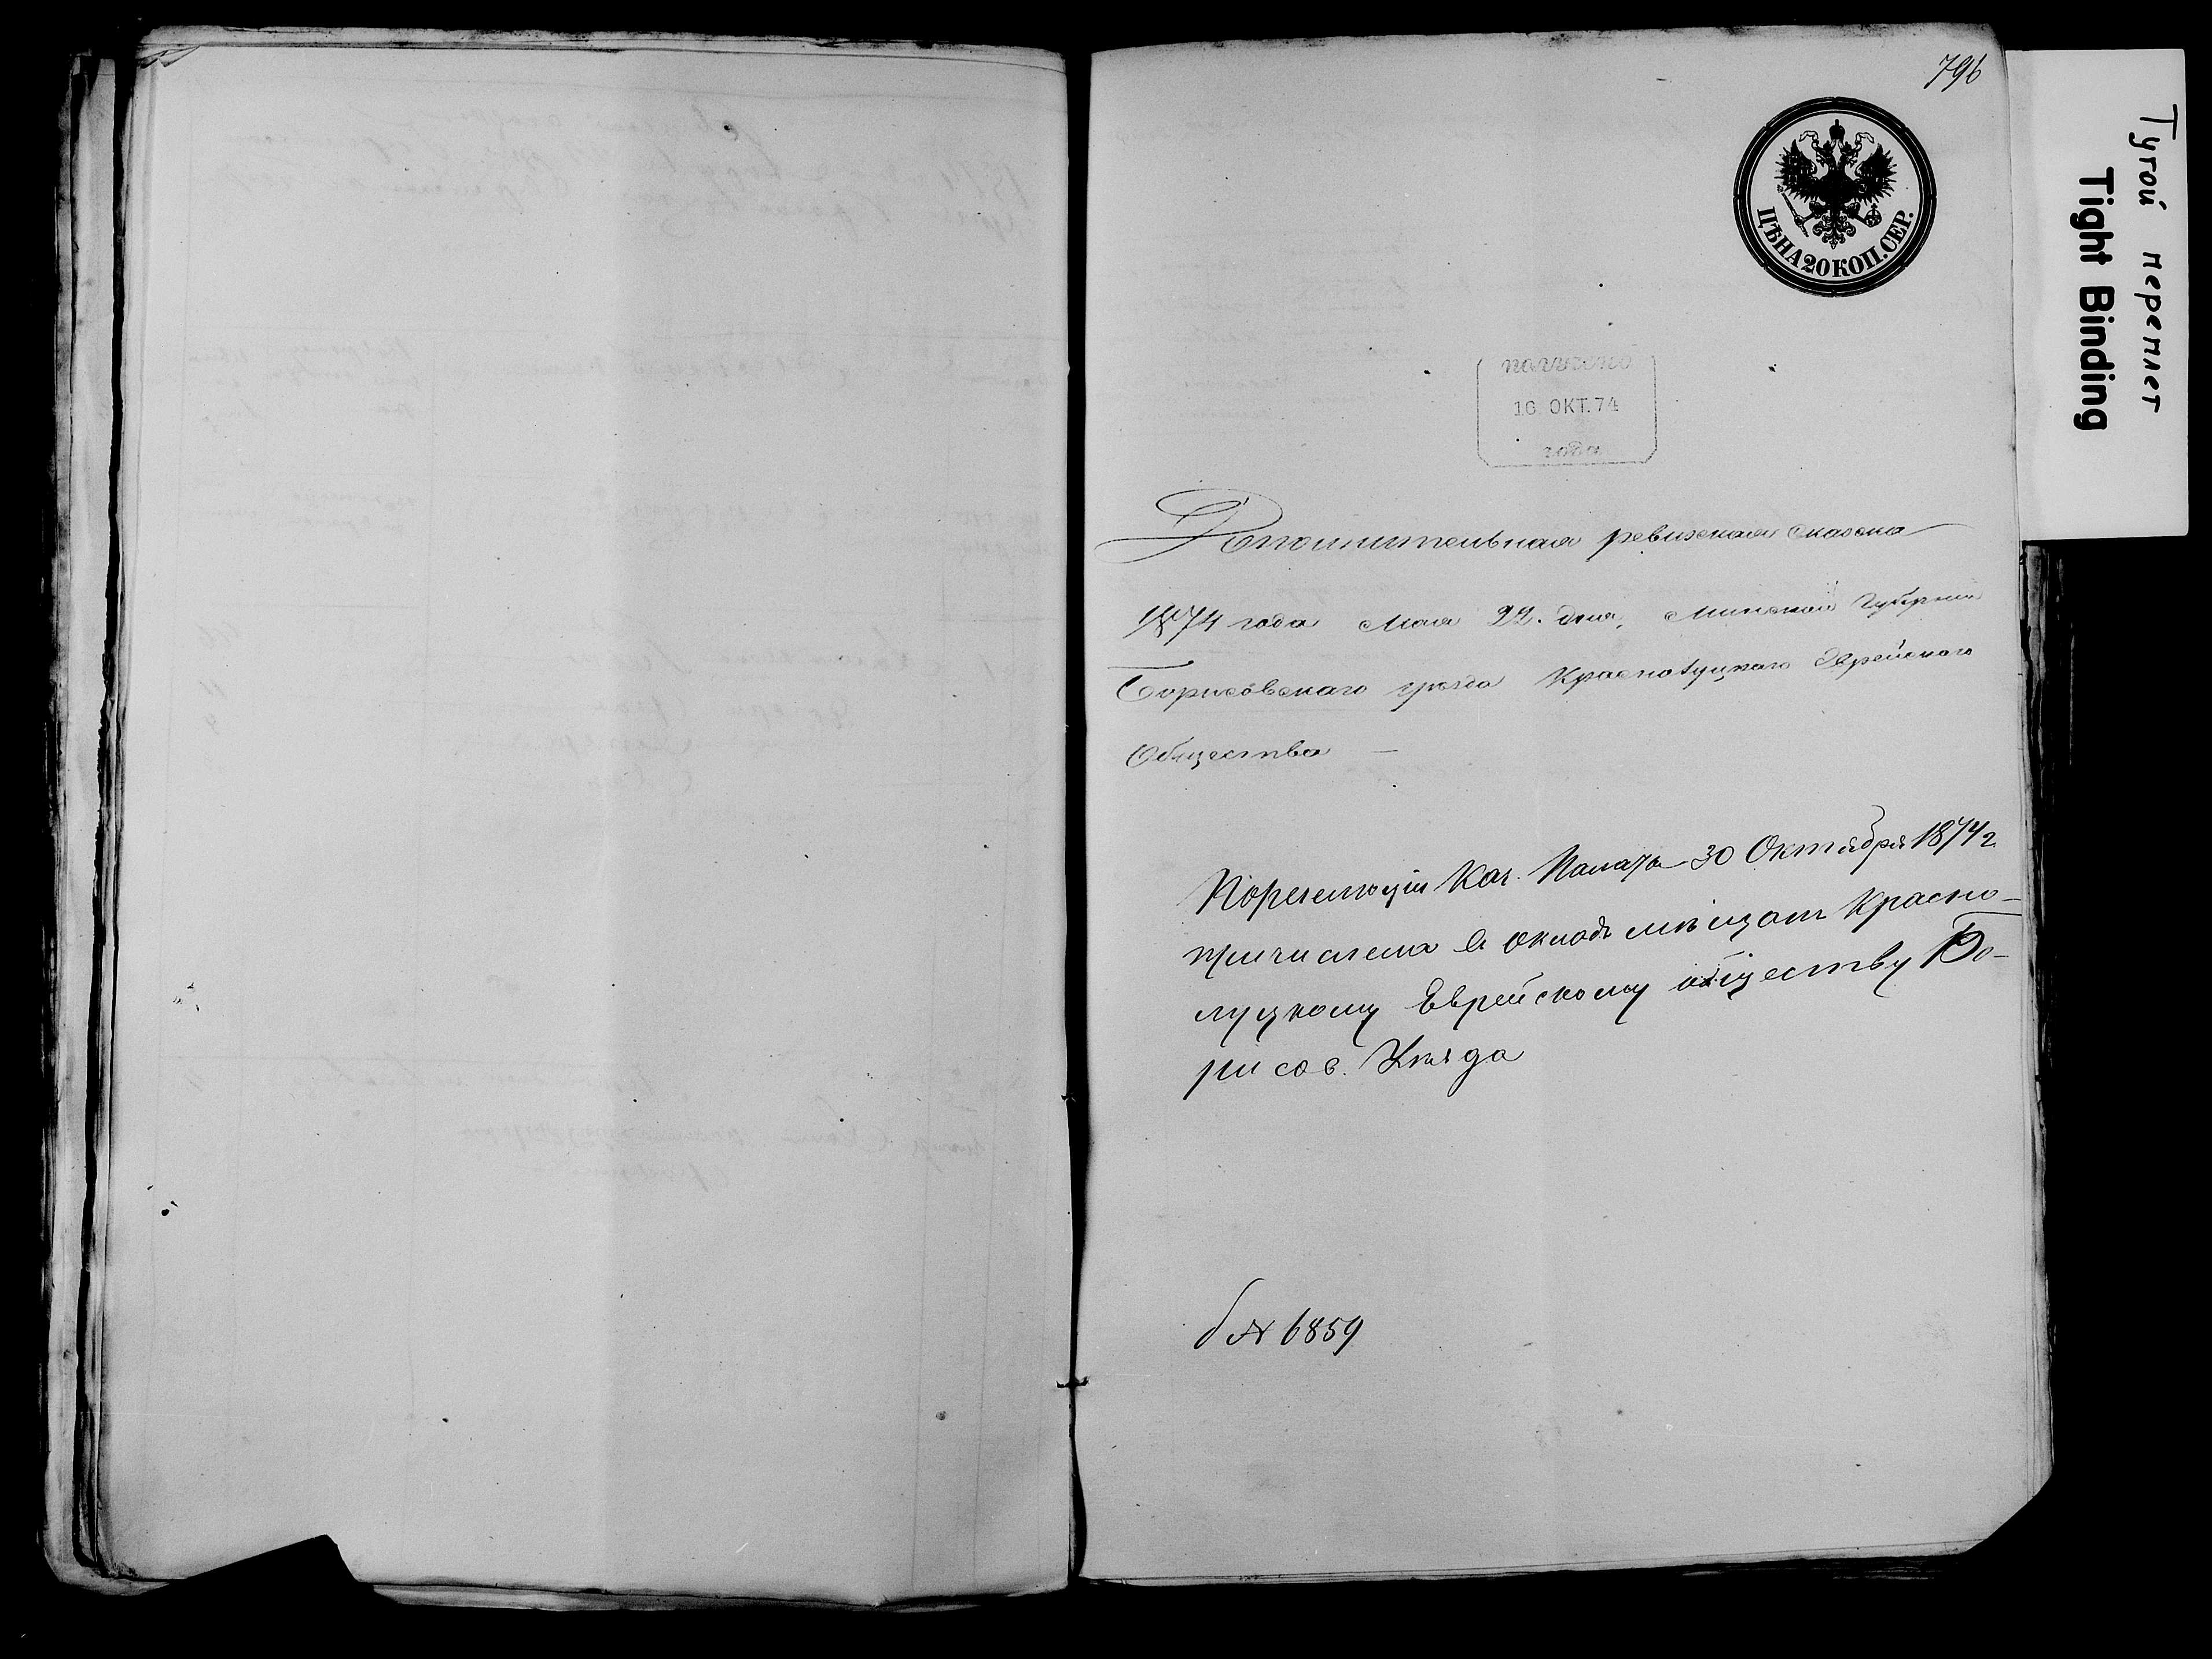 796
ЦѢНА 20 КОП. СЕР.
Тугой переплет
Tight Binding
получено
16 ОКТ. 74
года
Дополнительная ревизская сказка
1874 года Мая 22. дня, Минской Губернии
Борисовскаго уѣзда Краснолуцкаго Еврейскаго
Общества —
По резолюціи Каз. Палаты 30 Октября 1874 г.
причислена въ окладъ мѣщанъ Красно-
луцкому Еврейскому обществу Бо-
рисов. Уѣзда
№ 6859